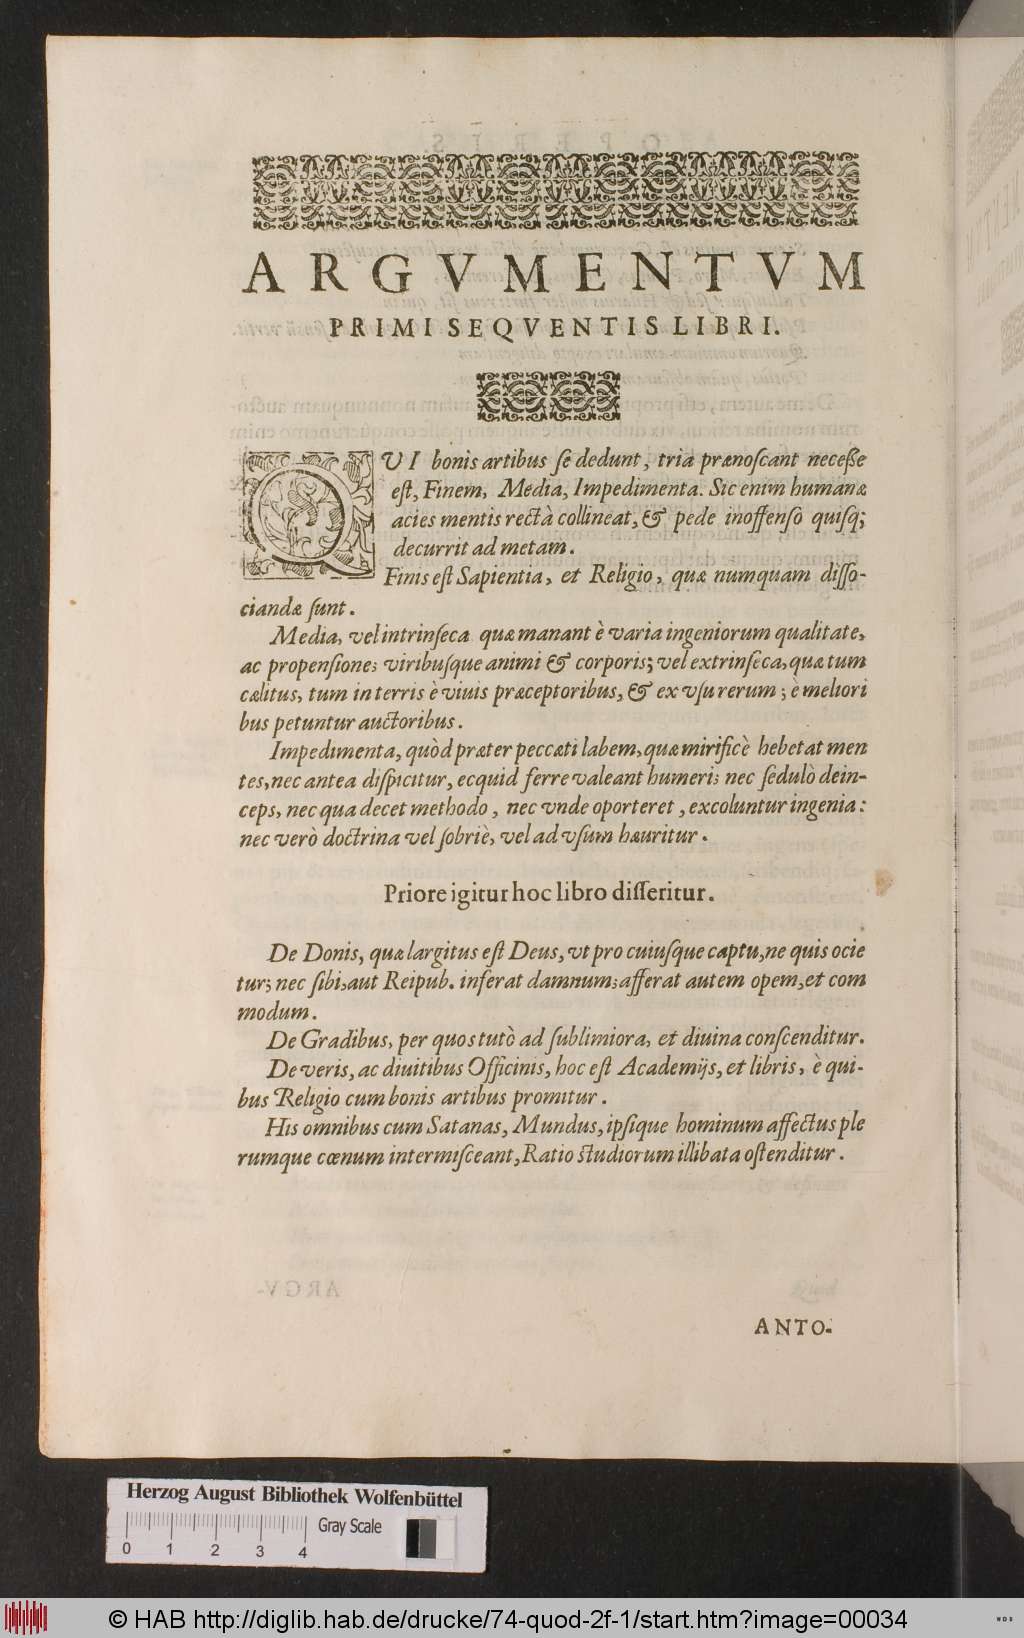 ARGVMENTVM
PRIMI SEQVENTIS LIBRI.
QVI bonis artibus se dedunt, tria prænoscant necesse
est, Finem, Media, Impedimenta. Sic enim humanæ
acies mentis rectà collineat, & pede inoffenso quisq;
decurrit ad metam.
Finis est Sapientia, et Religio, quæ numquam disso-
ciandæ sunt.
Media, vel intrinseca quæ manant è varia ingeniorum qualitate,
ac propensione; viribusque animi & corporis; vel extrinseca, quæ tum
cælitus, tum in terris è viuis præceptoribus, & ex vsu rerum; è meliori
bus petuntur auctoribus.
Impedimenta, quòd præter peccati labem, quæ mirificè hebetat men
tes, nec antea dispicitur, ecquid ferre valeant humeri; nec sedulò dein-
ceps, nec qua decet methodo, nec vnde oporteret, excoluntur ingenia:
nec verò doctrina vel sobriè, vel ad vsum hauritur.
Priore igitur hoc libro disseritur.
De Donis, quæ largitus est Deus, vt pro cuiusque captu, ne quis ocie
tur; nec sibi, aut Reipub. inferat damnum; afferat autem opem, et com
modum.
De Gradibus, per quos tutò ad sublimiora, et diuina conscenditur.
De veris, ac diuitibus Officinis, hoc est Academijs, et libris, è qui-
bus Religio cum bonis artibus promitur.
His omnibus cum Satanas, Mundus, ipsique hominum affectus ple
rumque cœnum intermisceant, Ratio studiorum illibata ostenditur.
ANTO-
Herzog August Bibliothek Wolfenbüttel
Gray Scale
0 1 2 3 4
© HAB http://diglib.hab.de/drucke/74-quod-2f-1/start.htm?image=00034